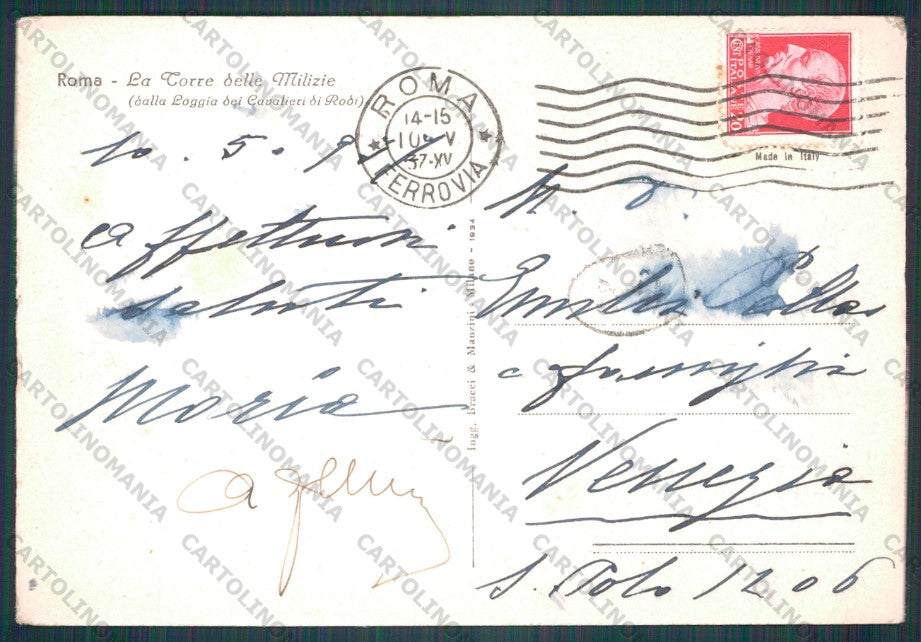 Roma - La Torre delle Milizie
(dalla Loggia dei Cavalieri di Rodi)
ROMA
14-15
10 V
37-XV
FERROVIA
POSTE
ITALIANE
Made in Italy
10.5.9
Affettuosi
saluti
Maria
Ingg. Bracci & Manzini - Milano - 1934
Emilio
e famiglia
Venezia
S. Polo 1206
CARTOLINOMANIA